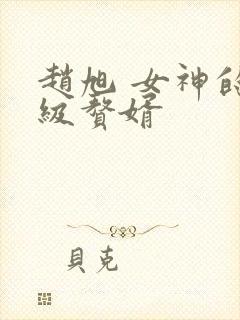 趙旭 女神的
級贅婿
貝克